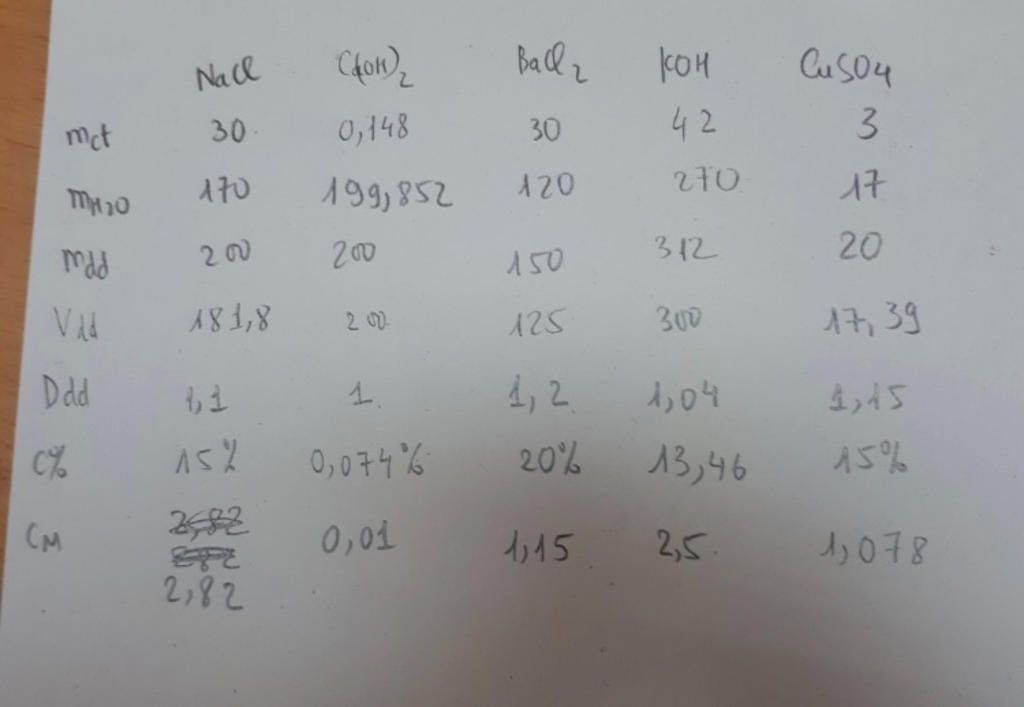 NaCl Ca(OH)2 BaCl2 KOH CuSO4
mct 30 0,148 30 42 3
mH2O 170 199,852 120 270 17
mdd 200 200 150 312 20
Vdd 181,8 200 125 300 17,39
Ddd 1,1 1 1,2 1,04 1,15
C% 15% 0,074% 20% 13,46 15%
CM 2,82 0,01 1,15 2,5 1,078
2,82